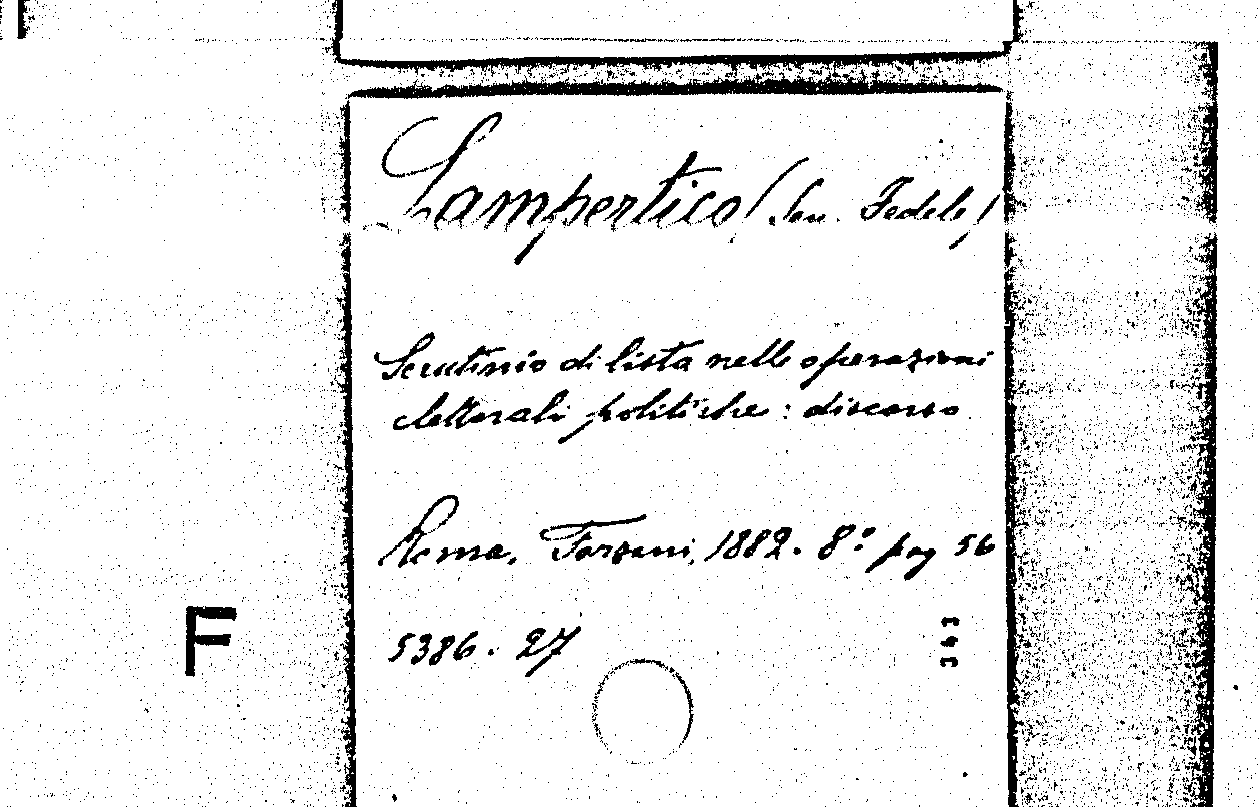 Lampertico (Sen. Fedele)
Scrutinio di lista nelle operazioni
elettorali politiche: discorso
Roma, Forzani, 1882. 8º pag 56
5386. 27
343
F